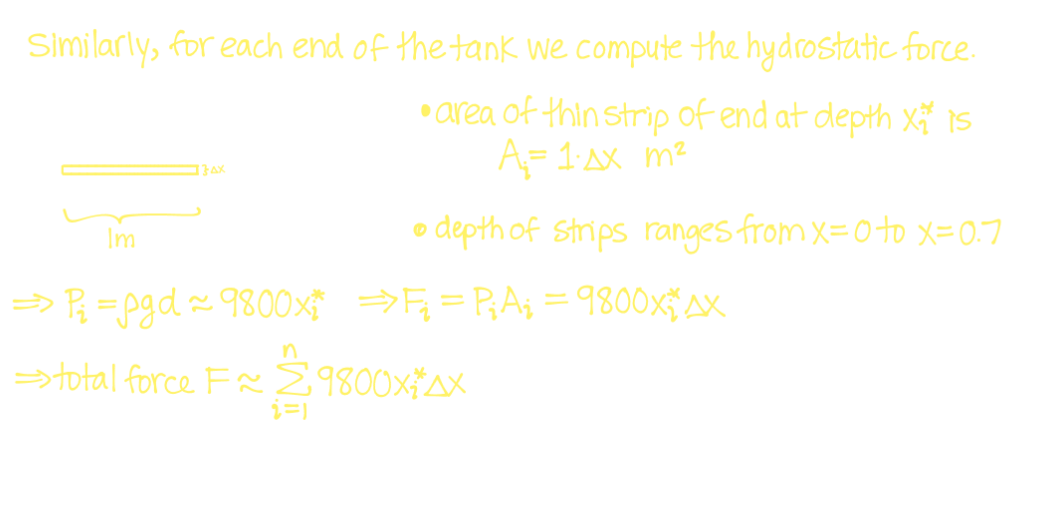 Similarly, for each end of the tank we compute the hydrostatic force.
• area of thin strip of end at depth xᵢ* is
Aᵢ = 1·Δx m²
}Δx
1m
• depth of strips ranges from x=0 to x=0.7
⇒ Pᵢ = ρgd ≈ 9800xᵢ* ⇒ Fᵢ = PᵢAᵢ = 9800xᵢ*Δx
⇒ total force F ≈ Σᵢ₌₁ⁿ 9800xᵢ*Δx